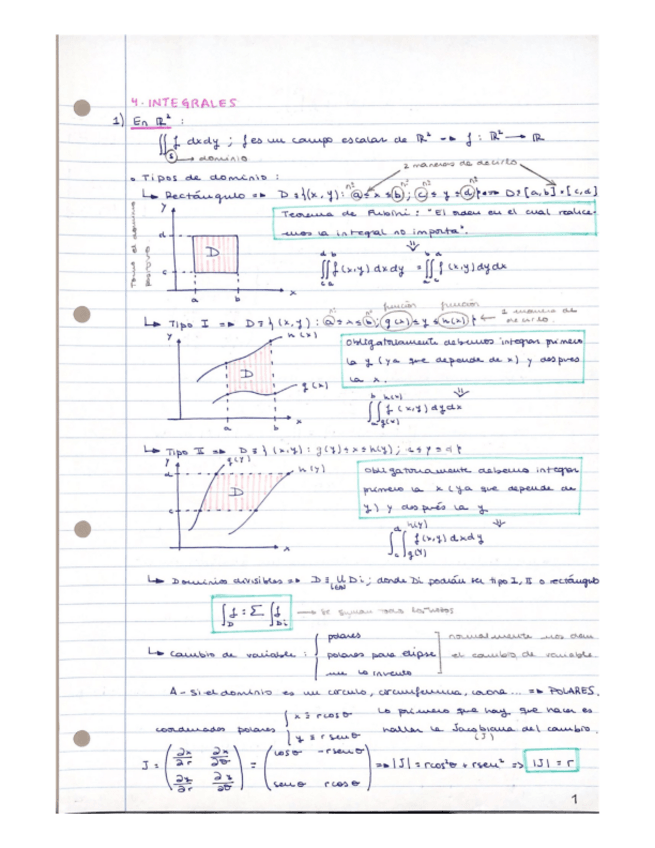 4. INTEGRALES
1) En ℝ² :
∬_S f dxdy ; f es un campo escalar de ℝ² → f : ℝ² → ℝ
↳ dominio
• Tipos de dominio :
2 maneras de decirlo
↳ Rectángulo ⇒ D ≡ {(x, y) : a ≤ x ≤ b ; c ≤ y ≤ d} ⇔ D ≡ [a, b] × [c, d]
nº nº nº nº
Teorema de Fubini : "El orden en el cual realice-
mos la integral no importa".
⇓
∫_c^d ∫_a^b f(x,y) dxdy = ∫_a^b ∫_c^d f(x,y) dydx
Toma el dominio
positivo
y
d
D
c
a b x
función función
↳ Tipo I ⇒ D ≡ {(x, y) : a ≤ x ≤ b ; g(x) ≤ y ≤ h(x)} ← 1 manera de
decirlo.
Obligatoriamente debemos integrar primero
la y (ya que depende de x) y después
la x.
⇓
∫_a^b ∫_{g(x)}^{h(x)} f(x,y) dydx
y
h(x)
D
g(x)
a b x
↳ Tipo II ⇒ D ≡ {(x,y) : g(y) ≤ x ≤ h(y) ; c ≤ y ≤ d}
Obligatoriamente debemos integrar
primero la x (ya que depende de
y) y después la y.
⇓
∫_c^d ∫_{g(y)}^{h(y)} f(x,y) dxdy
y
g(y)
d
h(y)
D
c
x
↳ Dominios divisibles ⇒ D ≡ ∪ Di ; donde Di podrán ser tipo I, II o rectángulo
∫_D f = Σ ∫_{Di} f → se suman
↳ Cambio de variable : { polares
polares para elipse
me lo invento
normalmente nos dan
el cambio de variable
A - Si el dominio es un círculo, circunferencia, corona ... ⇒ POLARES.
coordenadas polares { x = r cosθ
y = r senθ
Lo primero que hay que hacer es
hallar la Jacobiana del cambio.
(J)
J = ( ∂x/∂r ∂x/∂θ ; ∂y/∂r ∂y/∂θ ) = ( cosθ −r senθ ; senθ r cosθ ) ⇒ |J| = r cos²θ + r sen² ⇒ |J| = r
1